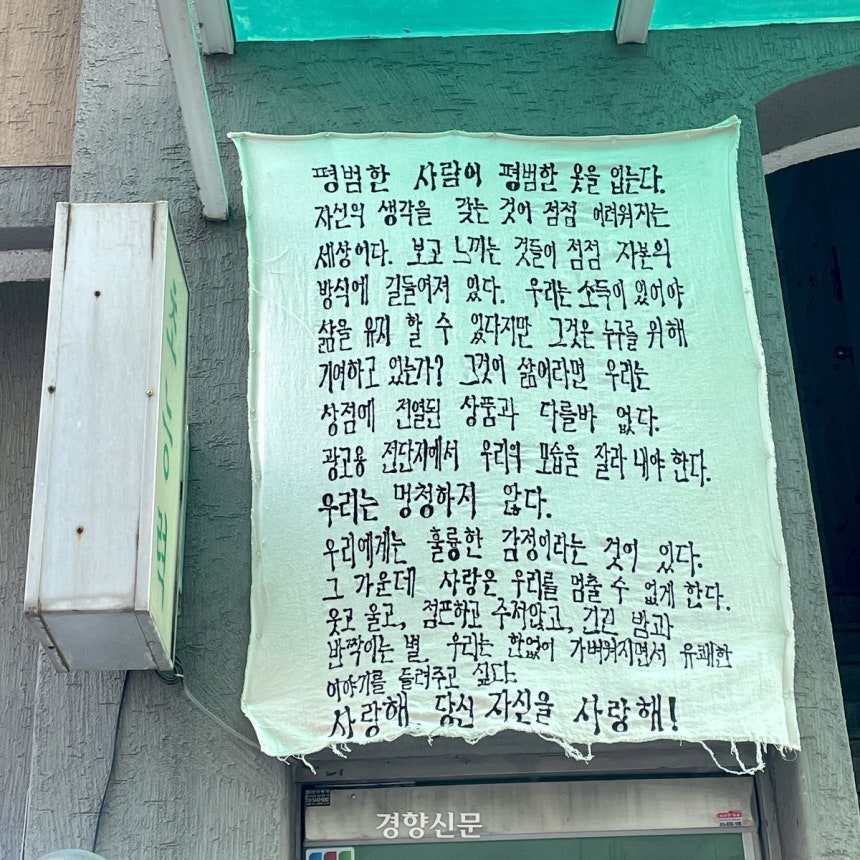 평범한 사람이 평범한 옷을 입는다.
자신의 생각을 갖는 것이 점점 어려워지는
세상이다. 보고 느끼는 것들이 점점 자본의
방식에 길들여져 있다. 우리는 소득이 있어야
삶을 유지 할 수 있다지만 그것은 누구를 위해
기여하고 있는가? 그것이 삶이라면 우리는
상점에 진열된 상품과 다를바 없다.
광고용 전단지에서 우리의 모습을 잘라 내야 한다.
우리는 멍청하지 않다.
우리에게는 훌륭한 감정이라는 것이 있다.
그 가운데 사랑은 우리를 멈출 수 없게 한다.
웃고 울고, 점프하고 주저앉고, 긴긴 밤과
반짝이는 별. 우리는 한없이 가벼워지면서 유쾌한
이야기를 들려주고 싶다.
사랑해 당신 자신을 사랑해!
경향신문